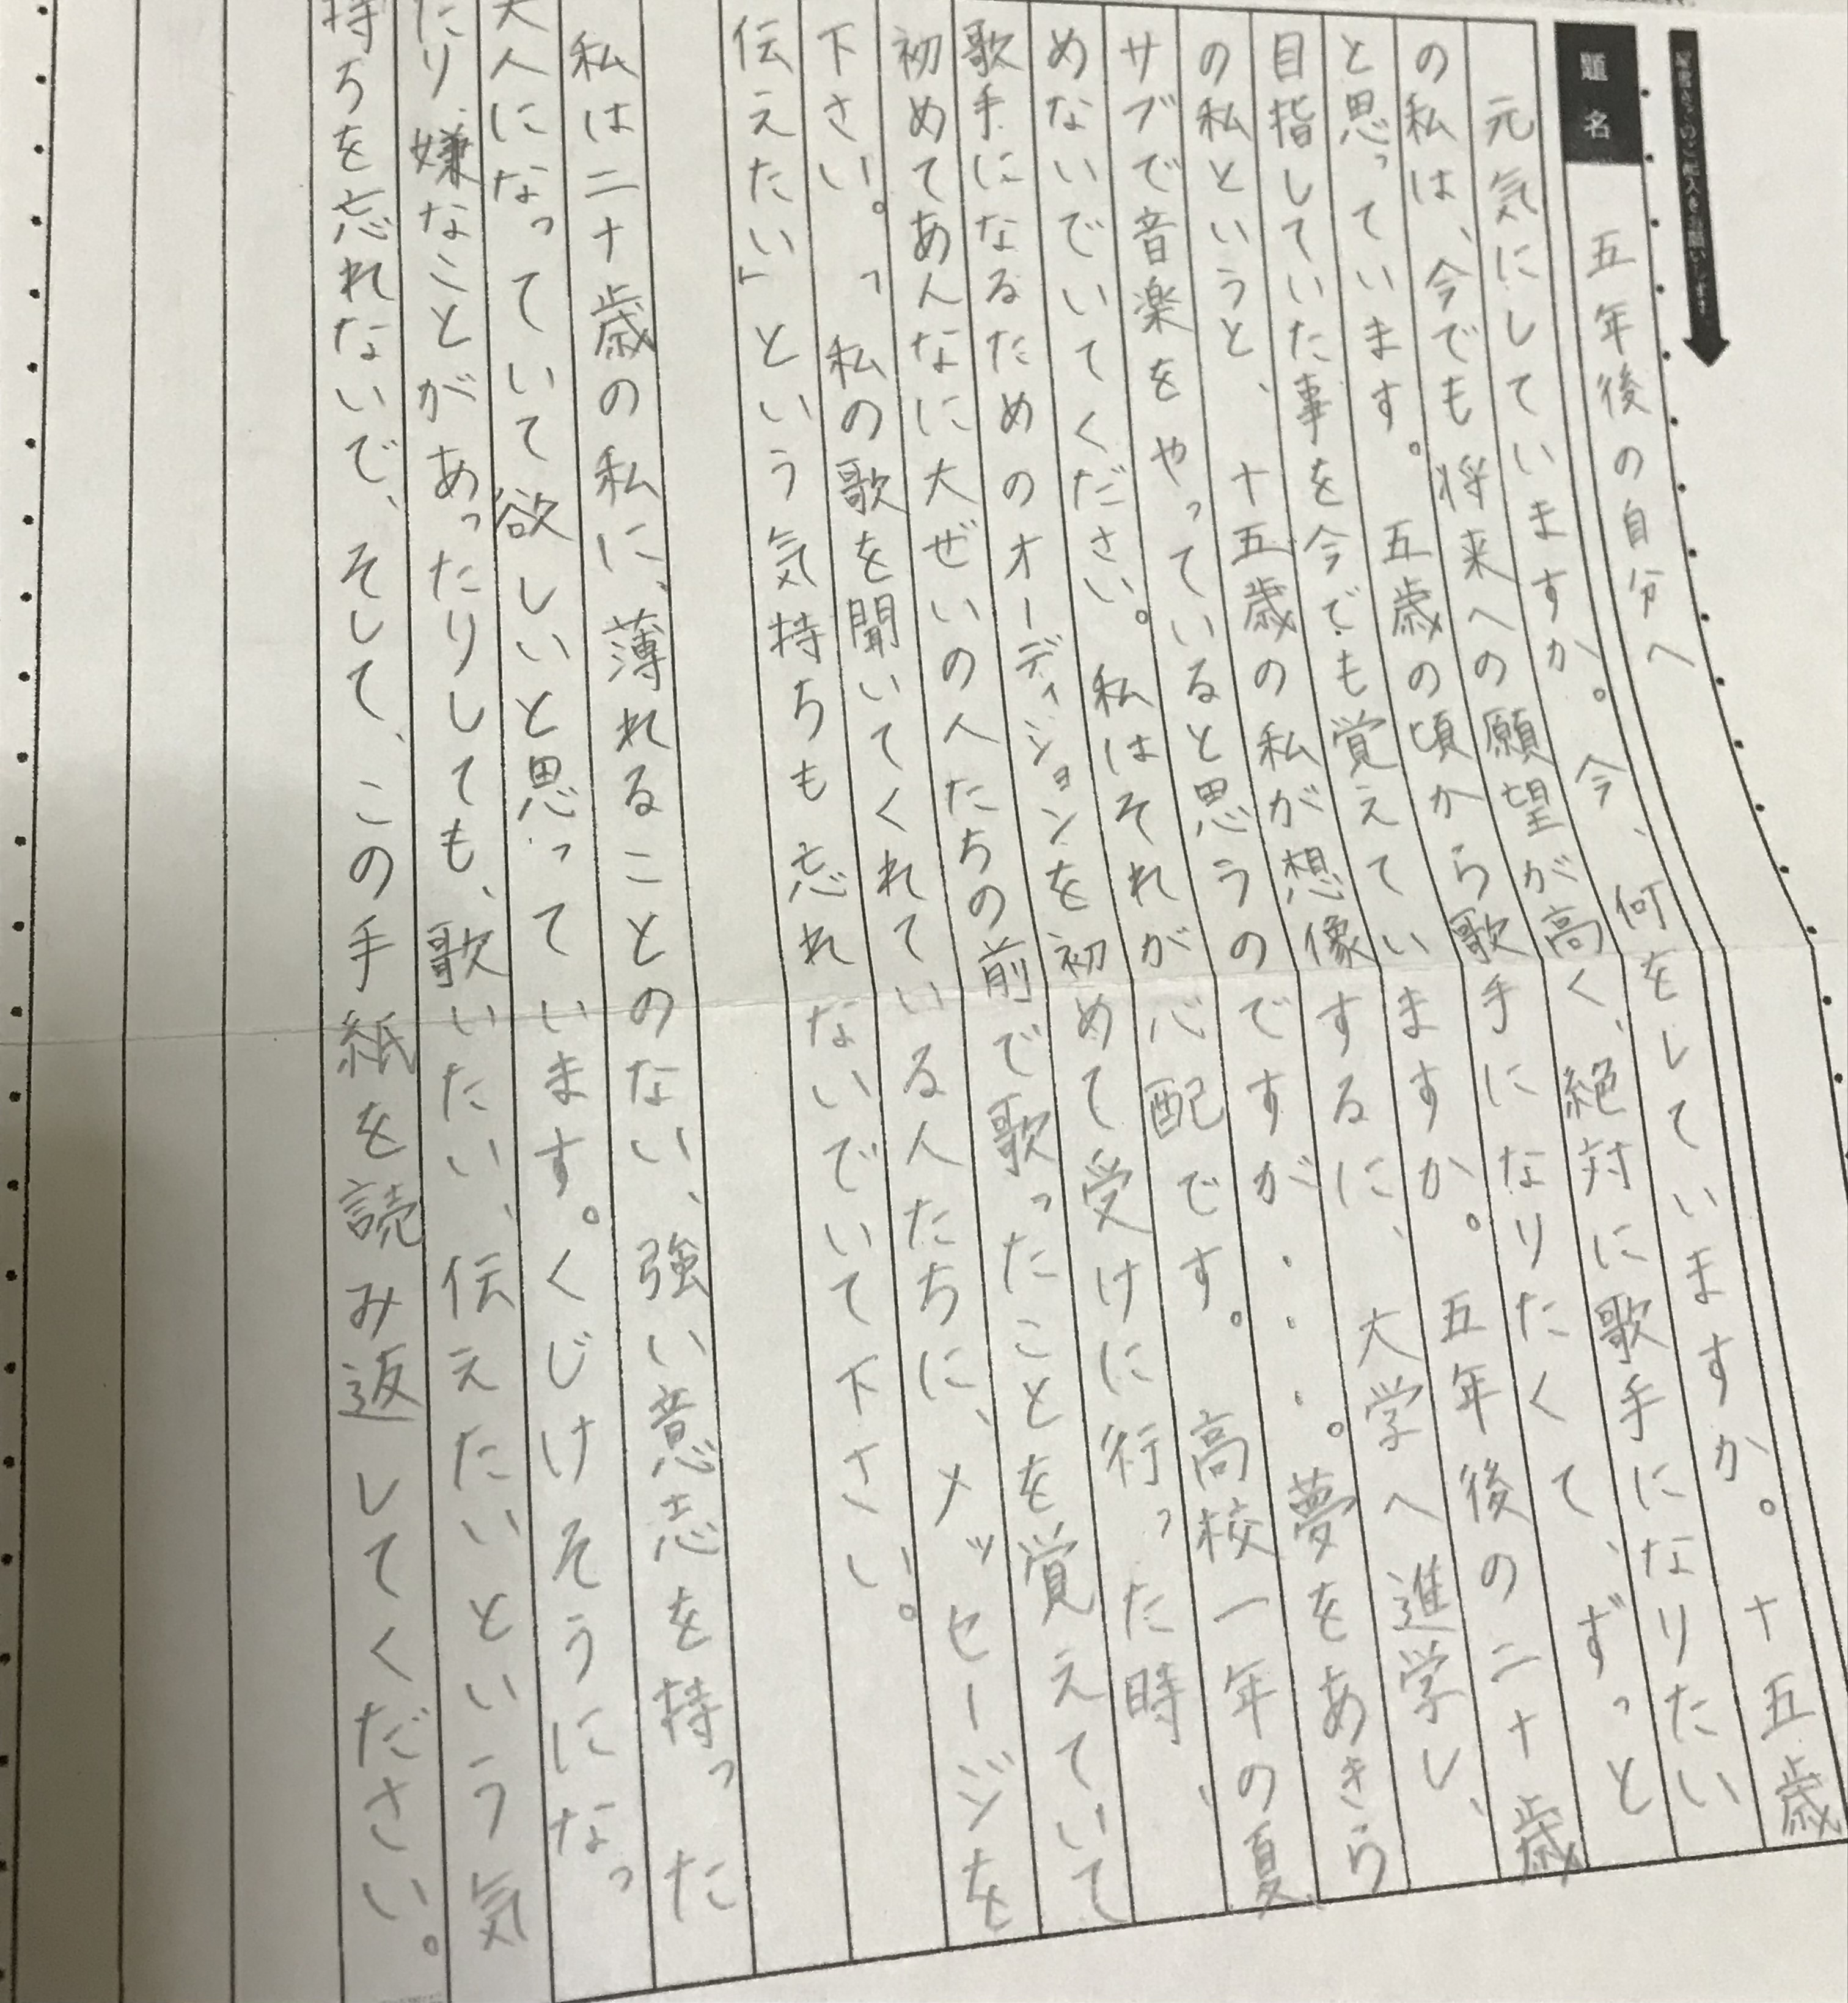 縦書きでのご記入をお願いします
題名
五年後の自分へ
元気にしていますか。今、何をしていますか。十五歳
の私は、今でも将来への願望が高く、絶対に歌手になりたい
と思っています。五歳の頃から歌手になりたくて、ずっと
目指していた事を今でも覚えていますか。五年後の二十歳
の私というと、十五歳の私が想像するに、大学へ進学し、
サブで音楽をやっていると思うのですが・・・。夢をあきら
めないでいてください。私はそれが心配です。高校一年の夏、
歌手になるためのオーディションを初めて受けに行った時、
初めてあんなに大ぜいの人たちの前で歌ったことを覚えていて
下さい。「私の歌を聞いてくれている人たちに、メッセージを
伝えたい」という気持ちも忘れないでいて下さい。
私は二十歳の私に、薄れることのない、強い意志を持った
大人になっていて欲しいと思っています。くじけそうになっ
たり、嫌なことがあったりしても、歌いたい、伝えたいという気
持ちを忘れないで、そして、この手紙を読み返してください。